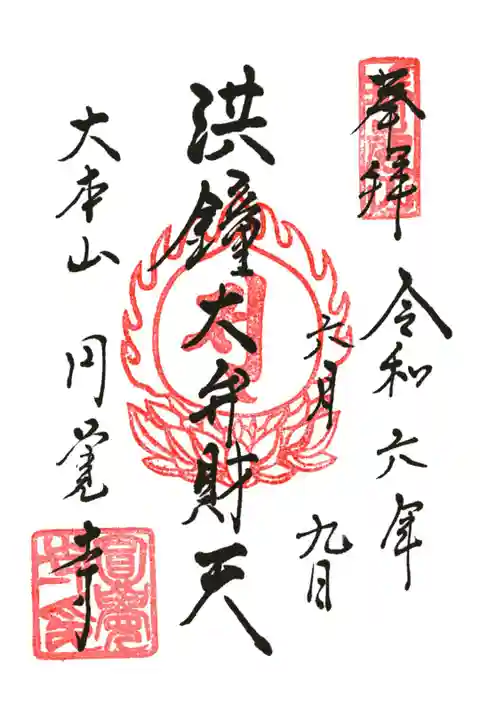 奉拝
令和六年
六月
九日
洪鐘大弁財天
大本山 円覚寺